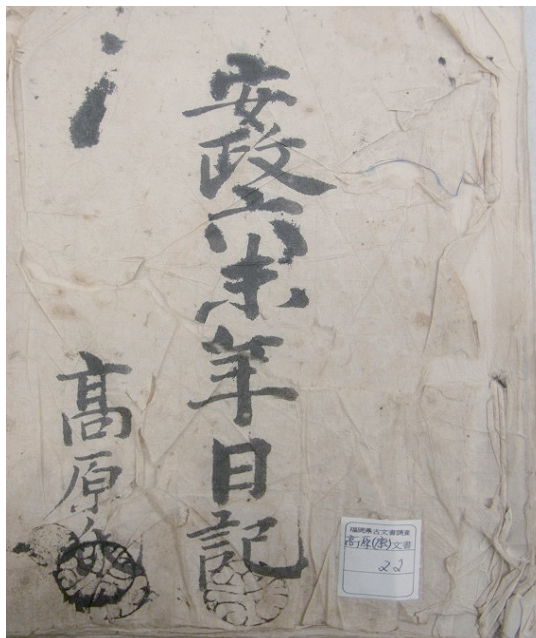 安政六未年日記
髙原
福岡県古文書調査
高原(康)文書
22